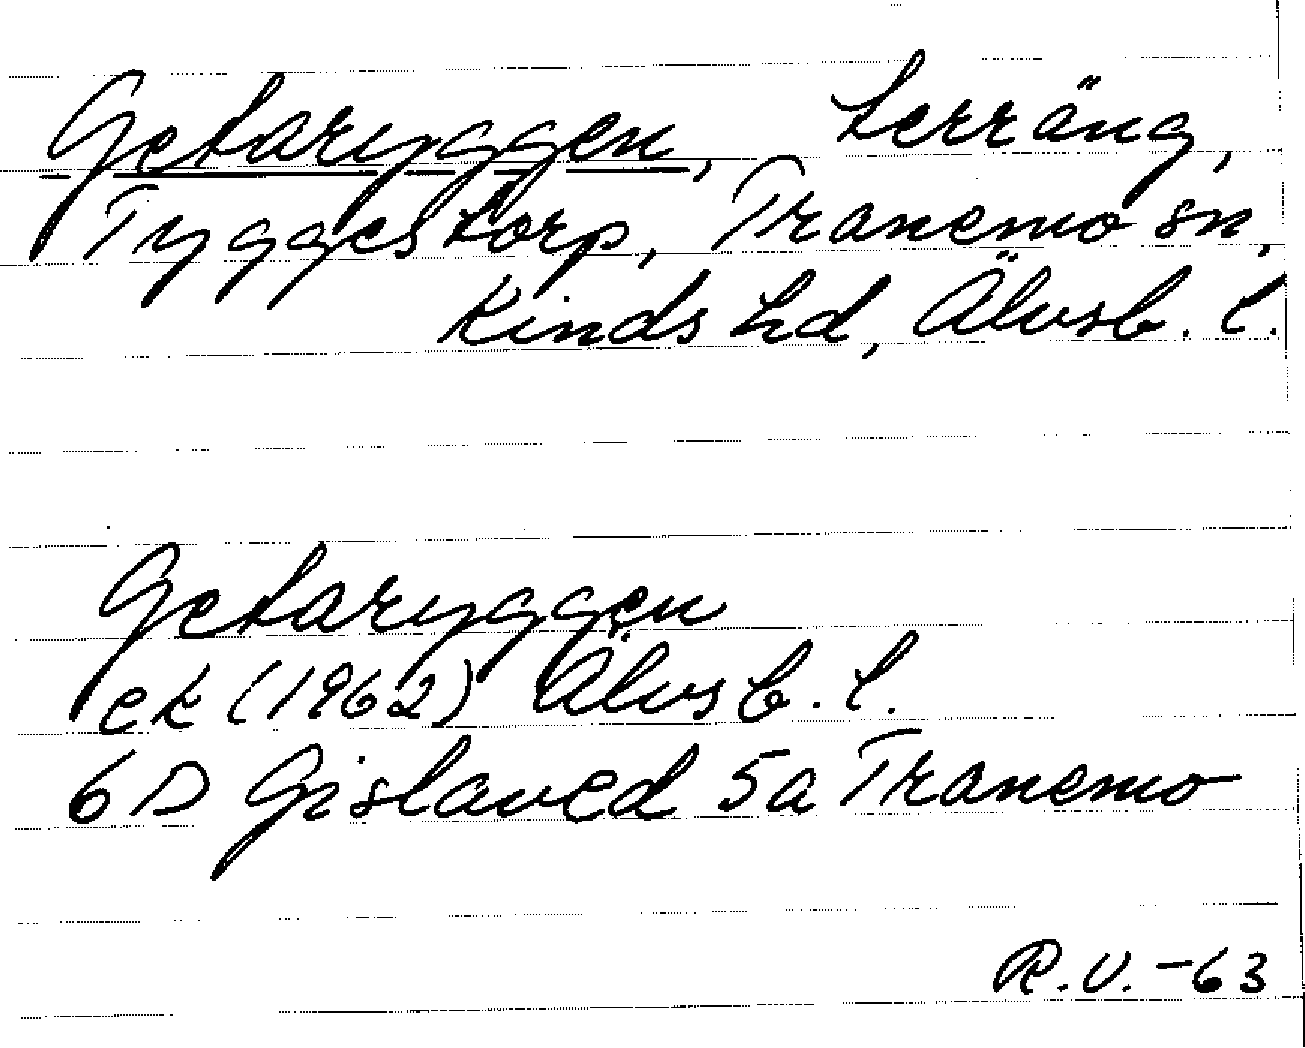 Getaryggen, terräng,
Tyggestorp, Tranemo sn,
Kinds hd, Älvsb. l.
Getaryggen
ek (1962) Älvsb. l.
6D Gislaved 5a Tranemo
R.V. -63